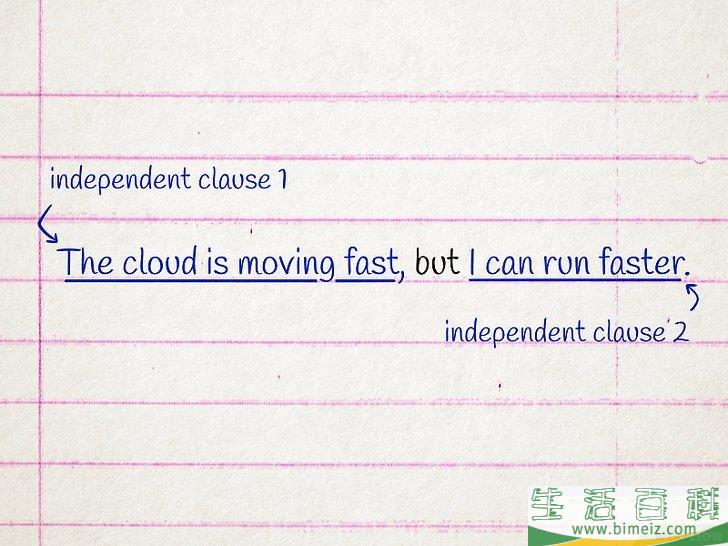 independent clause 1
The cloud is moving fast, but I can run faster.
independent clause 2
生活百科
www.bimeiz.com